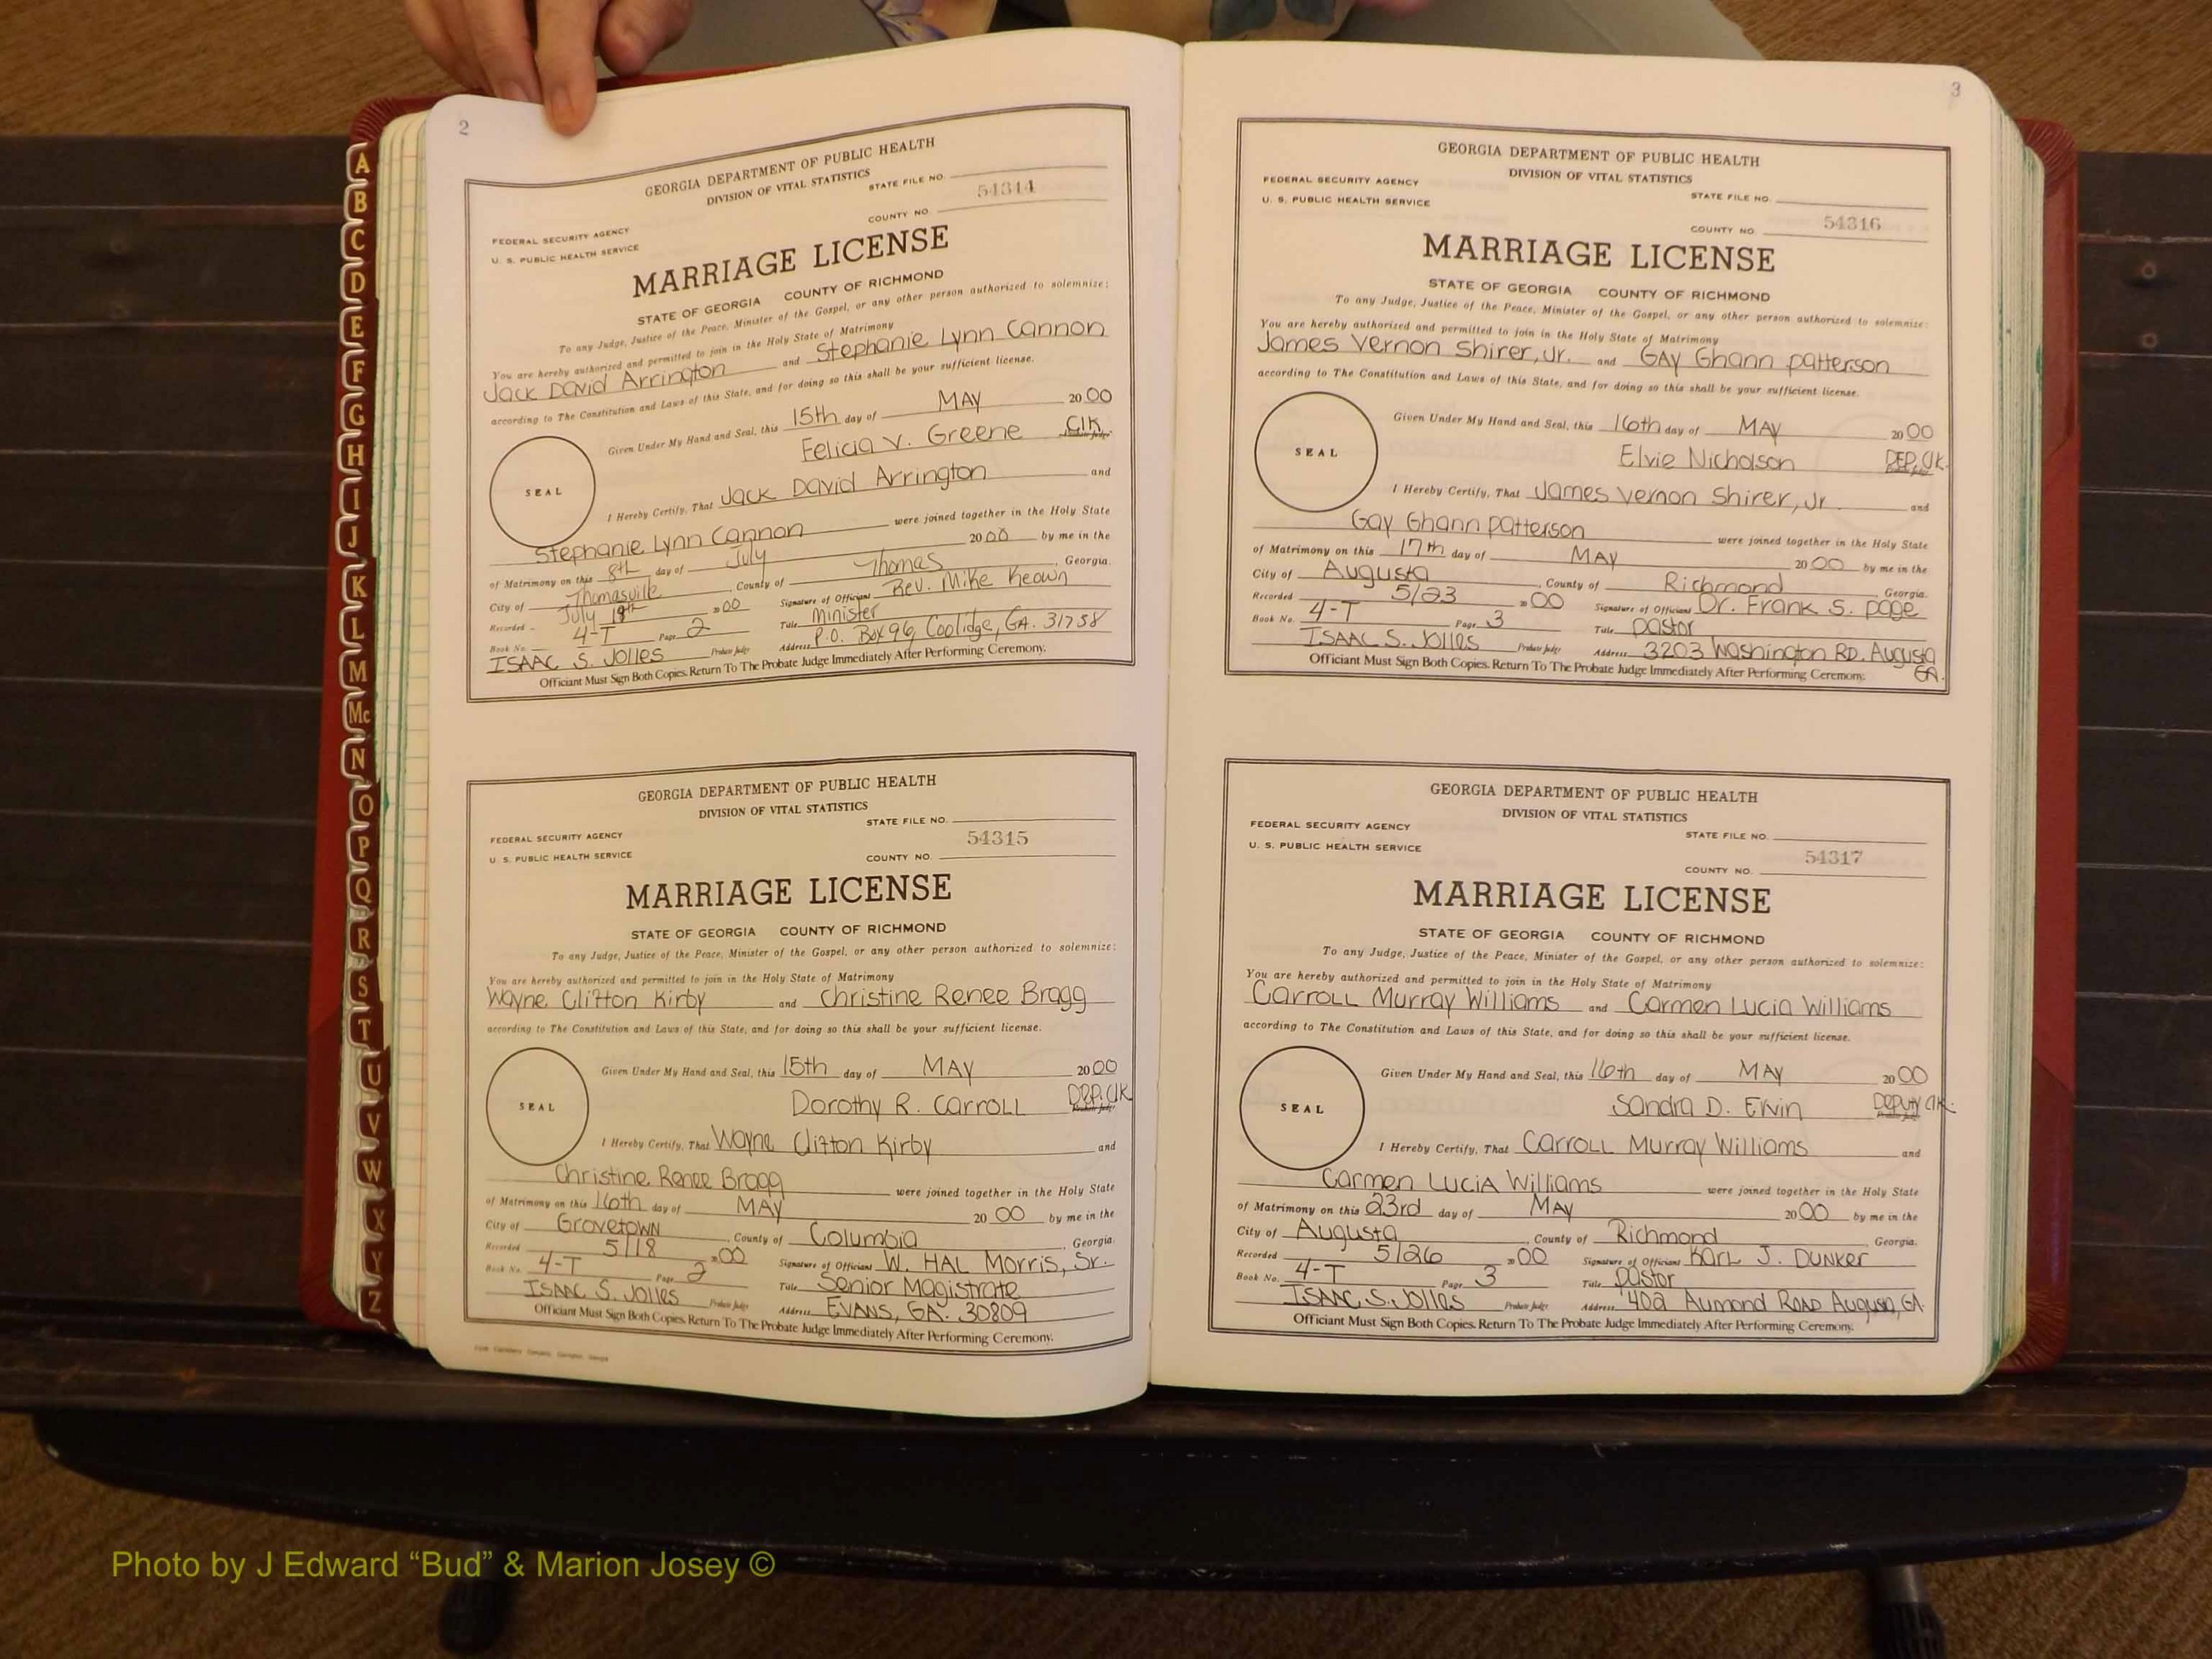 2
GEORGIA DEPARTMENT OF PUBLIC HEALTH
DIVISION OF VITAL STATISTICS
STATE FILE NO.
54314
COUNTY NO.
FEDERAL SECURITY AGENCY
U. S. PUBLIC HEALTH SERVICE
MARRIAGE LICENSE
STATE OF GEORGIA COUNTY OF RICHMOND
To any Judge, Justice of the Peace, Minister of the Gospel, or any other person authorized to solemnize:
You are hereby authorized and permitted to join in the Holy State of Matrimony
Jack David Arrington and Stephanie Lynn Cannon
according to The Constitution and Laws of this State, and for doing so this shall be your sufficient license.
Given Under My Hand and Seal, this 15th day of MAY 20 00
Felicia V. Greene Clk. Probate Judge
SEAL
I Hereby Certify, That Jack David Arrington and
Stephanie Lynn Cannon were joined together in the Holy State
of Matrimony on this 8th day of July 20 00 by me in the
City of Thomasville, County of Thomas, Georgia.
Recorded July 19th 20 00 Signature of Officiant Rev. Mike Keown
Book No. 4-T Page 2 Title Minister
ISAAC S. Jolles Probate Judge Address P.O. Box 96, Coolidge, GA. 31758
Officiant Must Sign Both Copies. Return To The Probate Judge Immediately After Performing Ceremony.
GEORGIA DEPARTMENT OF PUBLIC HEALTH
DIVISION OF VITAL STATISTICS
STATE FILE NO.
FEDERAL SECURITY AGENCY
54315
U. S. PUBLIC HEALTH SERVICE
COUNTY NO.
MARRIAGE LICENSE
STATE OF GEORGIA COUNTY OF RICHMOND
To any Judge, Justice of the Peace, Minister of the Gospel, or any other person authorized to solemnize:
You are hereby authorized and permitted to join in the Holy State of Matrimony
Wayne Clifton Kirby and Christine Renee Bragg
according to The Constitution and Laws of this State, and for doing so this shall be your sufficient license.
Given Under My Hand and Seal, this 15th day of MAY 20 00
Dorothy R. Carroll Dep. Clk Probate Judge
SEAL
I Hereby Certify, That Wayne Clifton Kirby and
Christine Renee Bragg were joined together in the Holy State
of Matrimony on this 16th day of MAY 20 00 by me in the
City of Grovetown, County of Columbia, Georgia.
Recorded 5/18 20 00 Signature of Officiant W. HAL Morris, Sr.
Book No. 4-T Page 2 Title Senior Magistrate
ISAAC S. Jolles Probate Judge Address EVANS, GA. 30809
Officiant Must Sign Both Copies. Return To The Probate Judge Immediately After Performing Ceremony.
3
GEORGIA DEPARTMENT OF PUBLIC HEALTH
DIVISION OF VITAL STATISTICS
FEDERAL SECURITY AGENCY
STATE FILE NO.
U. S. PUBLIC HEALTH SERVICE
54316
COUNTY NO.
MARRIAGE LICENSE
STATE OF GEORGIA COUNTY OF RICHMOND
To any Judge, Justice of the Peace, Minister of the Gospel, or any other person authorized to solemnize:
You are hereby authorized and permitted to join in the Holy State of Matrimony
James Vernon Shirer, Jr. and GAY Ghann Patterson
according to The Constitution and Laws of this State, and for doing so this shall be your sufficient license.
Given Under My Hand and Seal, this 16th day of MAY 20 00
Elvie Nicholson DEP. Clk. Probate Judge
SEAL
I Hereby Certify, That James Vernon Shirer, Jr. and
Gay Ghann Patterson were joined together in the Holy State
of Matrimony on this 17th day of MAY 20 00 by me in the
City of Augusta, County of Richmond Georgia.
Recorded 5/23 20 00 Signature of Officiant Dr. Frank S. Page
Book No. 4-T Page 3 Title Pastor
ISAAC S. Jolles Probate Judge Address 3203 Washington RD. Augusta GA.
Officiant Must Sign Both Copies. Return To The Probate Judge Immediately After Performing Ceremony.
GEORGIA DEPARTMENT OF PUBLIC HEALTH
DIVISION OF VITAL STATISTICS
FEDERAL SECURITY AGENCY
STATE FILE NO.
U. S. PUBLIC HEALTH SERVICE
54317
COUNTY NO.
MARRIAGE LICENSE
STATE OF GEORGIA COUNTY OF RICHMOND
To any Judge, Justice of the Peace, Minister of the Gospel, or any other person authorized to solemnize:
You are hereby authorized and permitted to join in the Holy State of Matrimony
Carroll Murray Williams and Carmen Lucia Williams
according to The Constitution and Laws of this State, and for doing so this shall be your sufficient license.
Given Under My Hand and Seal, this 16th day of MAY 20 00
Sandra D. Ervin Deputy Clk. Probate Judge
SEAL
I Hereby Certify, That Carroll Murray Williams and
Carmen LUCIA Williams were joined together in the Holy State
of Matrimony on this 23rd day of MAY 20 00 by me in the
City of Augusta, County of Richmond, Georgia.
Recorded 5/26 20 00 Signature of Officiant KARL J. DUNKER
Book No. 4-T Page 3 Title Pastor
ISAAC S. Jolles Probate Judge Address 402 Aumond ROAD Augusta, GA.
Officiant Must Sign Both Copies. Return To The Probate Judge Immediately After Performing Ceremony.
A
B
C
D
E
F
G
H
I
J
K
L
M
Mc
N
O
P
Q
R
S
T
U
V
W
X
Y
Z
Photo by J Edward “Bud” & Marion Josey ©